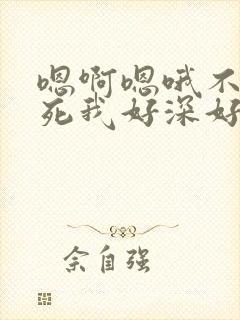 嗯啊嗯哦不
死我好深好
余自强